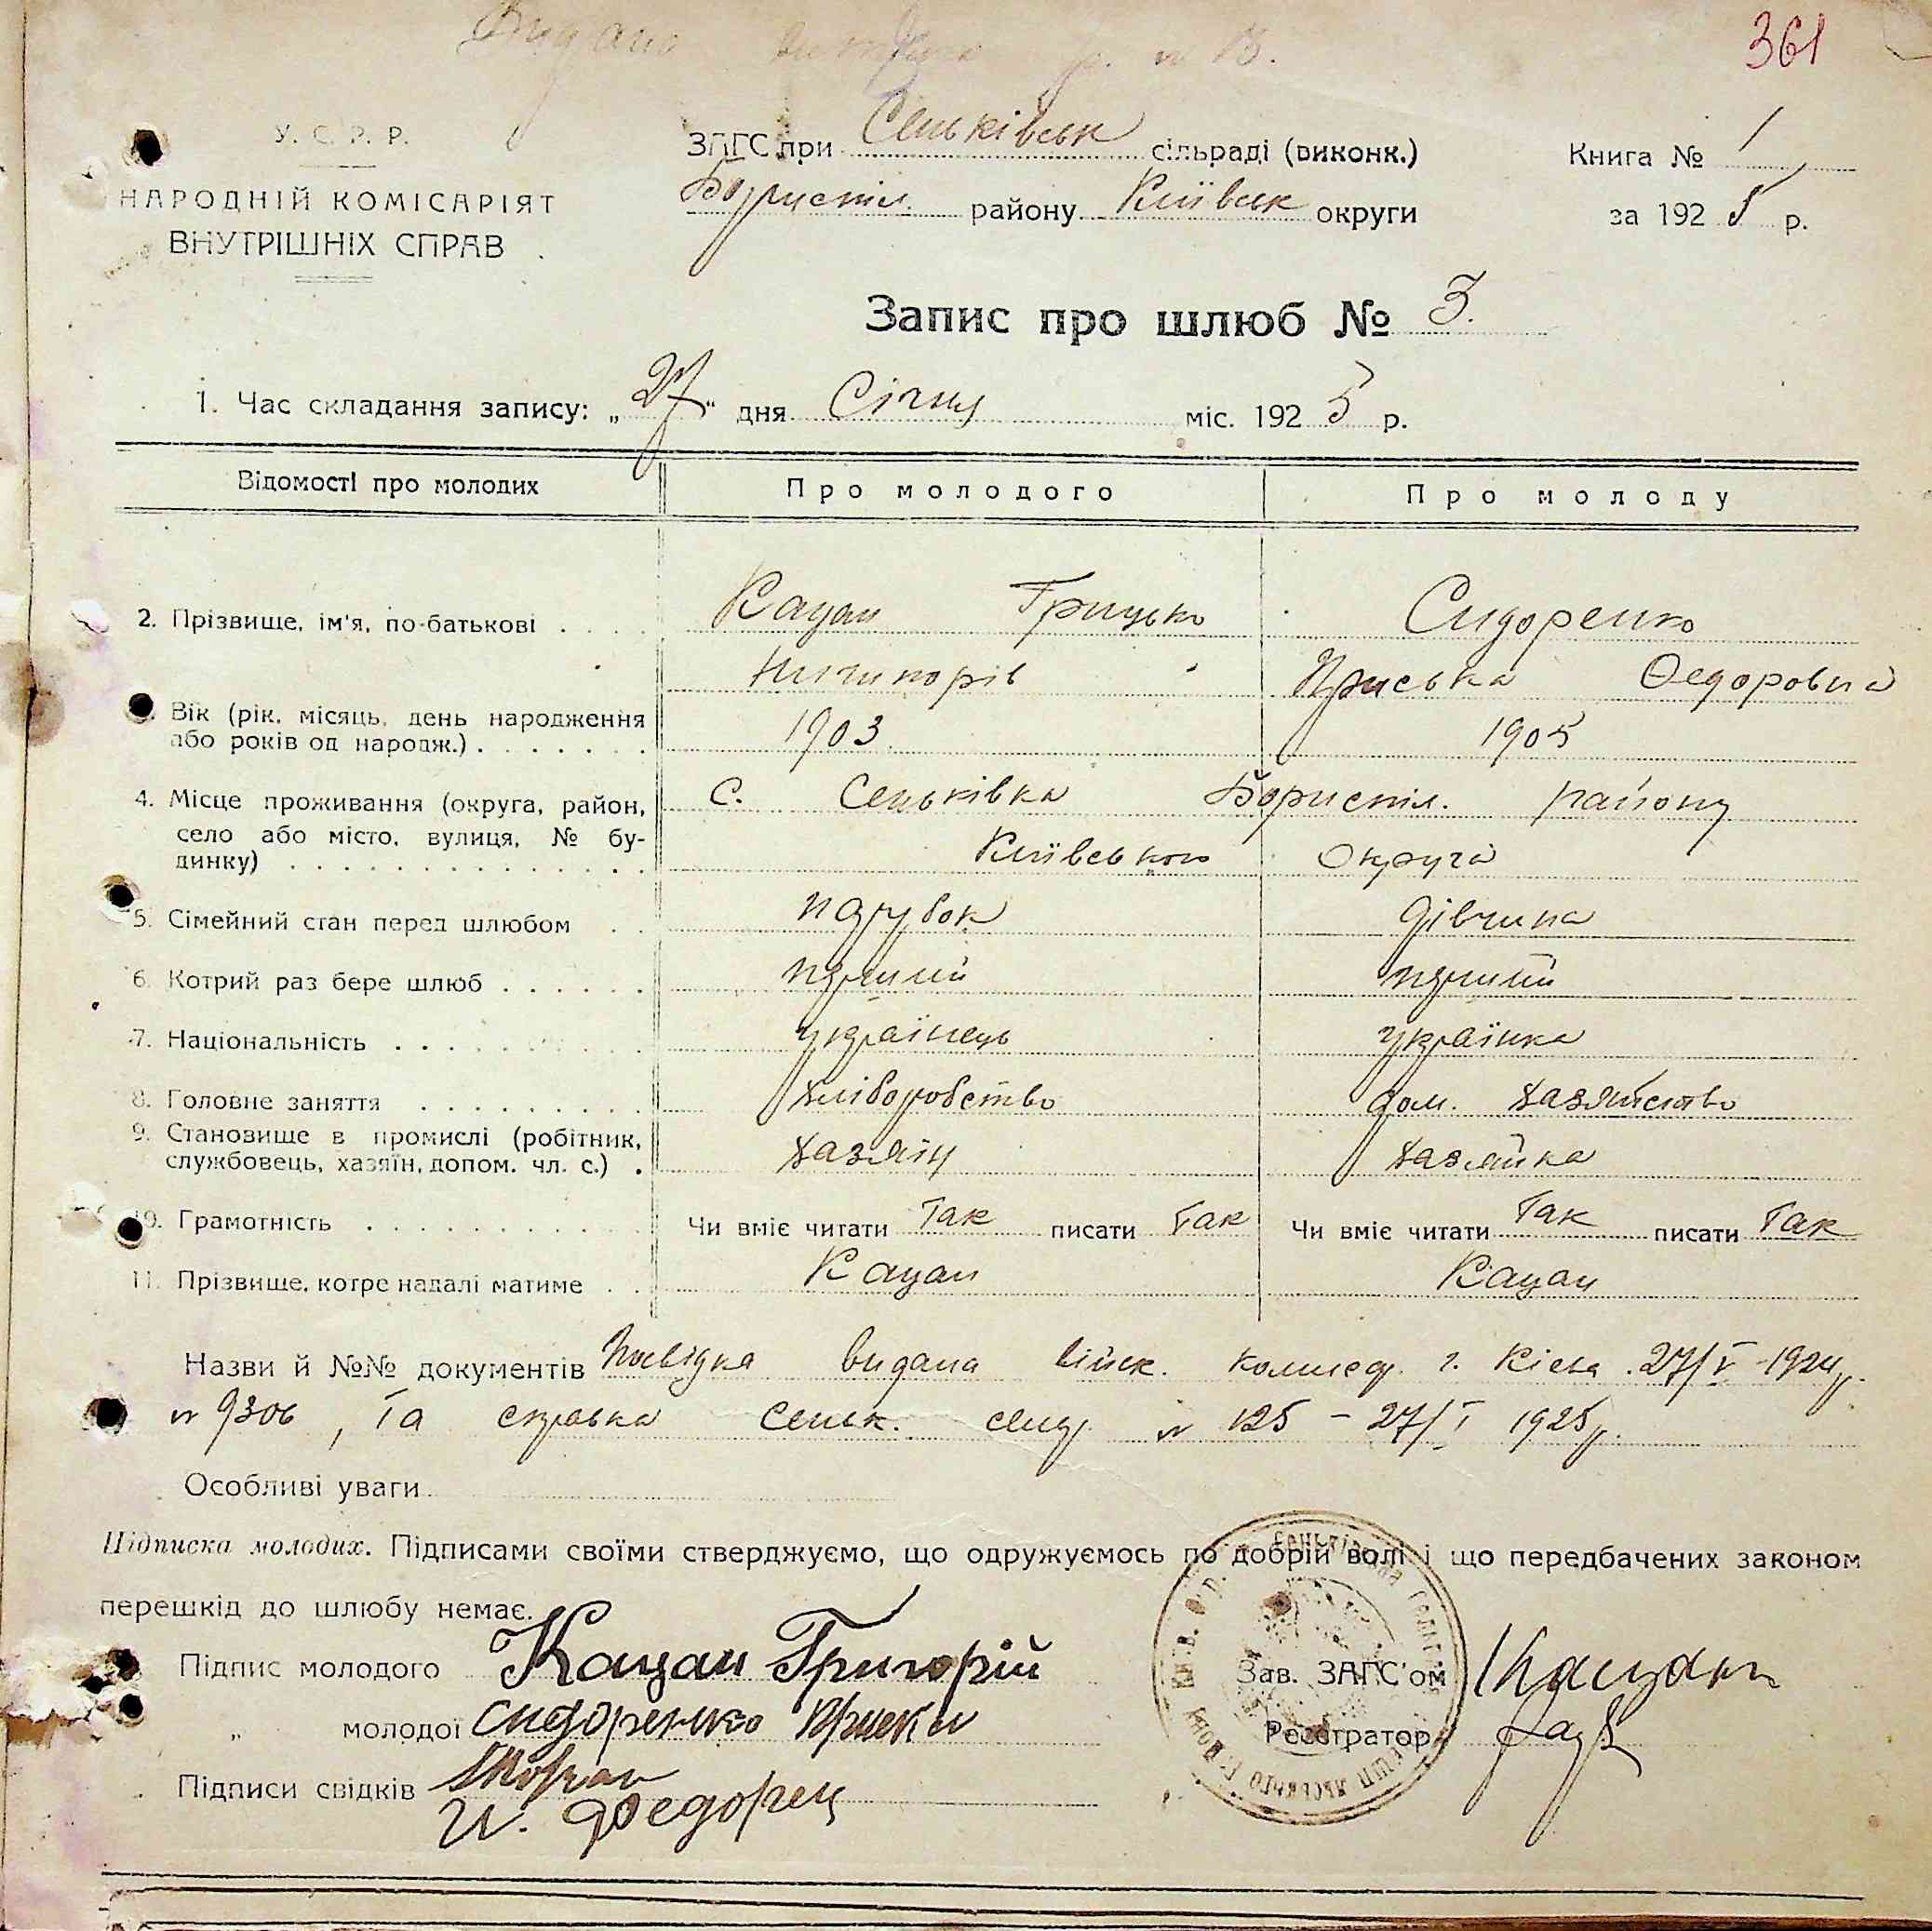 361
У. С. Р. Р.
НАРОДНІЙ КОМІСАРІЯТ
ВНУТРІШНІХ СПРАВ
ЗАГС при Сеньківськ сільраді (виконк.)
Бориспіл. району Київськ округи
Книга № 1
за 1925 р.
Запис про шлюб № 3.
1. Час складання запису: „27" дня Січня міс. 1925 р.
Відомості про молодих Про молодого Про молоду
2. Прізвище, ім'я, по-батькові Кацан Грицько Сидоренко
Ничипорів Пріська Федоровна
3. Вік (рік, місяць, день народження
або років од народж.) 1903 1905
4. Місце проживання (округа, район, С. Сеньківка Бориспіл. району
село або місто, вулиця, № бу-
динку) Київського Округа
5. Сімейний стан перед шлюбом парубок дівчина
6. Котрий раз бере шлюб перший перший
7. Національність українець українка
8. Головне заняття хліборобство дом. хазяйство
9. Становище в промислі (робітник,
службовець, хазяїн, допом. чл. с.) хазяїн хазяйка
10. Грамотність Чи вміє читати Так писати Так Чи вміє читати Так писати Так
11. Прізвище, котре надалі матиме Кацан Кацан
Назви й №№ документів Посвідка видана військ. г. Кієва 27/V-1924р.
№ 9306, та справка сеньк. № 125 – 27/I 1925р.
Особливі уваги
Підписка молодих. Підписами своїми стверджуємо, що одружуємось по добрій волі і що передбачених законом
перешкід до шлюбу немає.
Підпис молодого Кацан Григорій
„ молодої Сидоренко
Підписи свідків
И. Федорец
Зав. ЗАГС'ом Кацан
Реєстратор